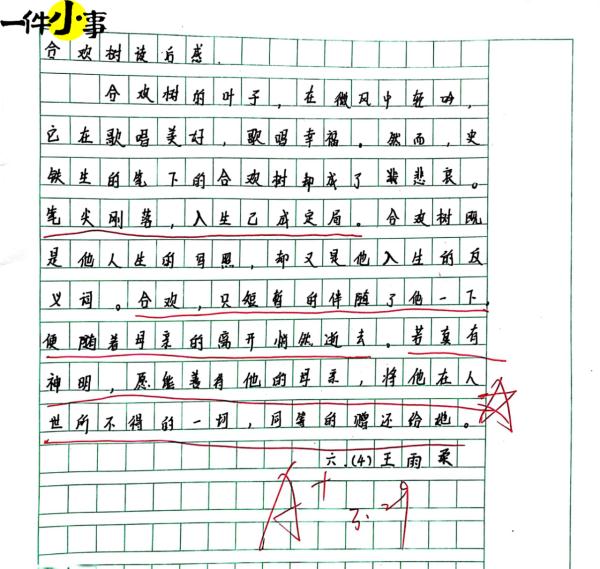 一件小事
合欢树读后感
合欢树的叶子，在微风中轻吟，
它在歌唱美好，歌唱幸福。然而，史
铁生的笔下的合欢树却成了悲哀。
笔尖刚落，人生已成定局。合欢树既
是他人生的写照，却又是他人生的反
义词。合欢，只短暂的伴随了他一下，
便随着母亲的离开悄然逝去。若真有
神明，愿能善待他的母亲，将他在人
世所不得的一切，同等的赠还给她。
六.(4)王雨柔
A+
3.29